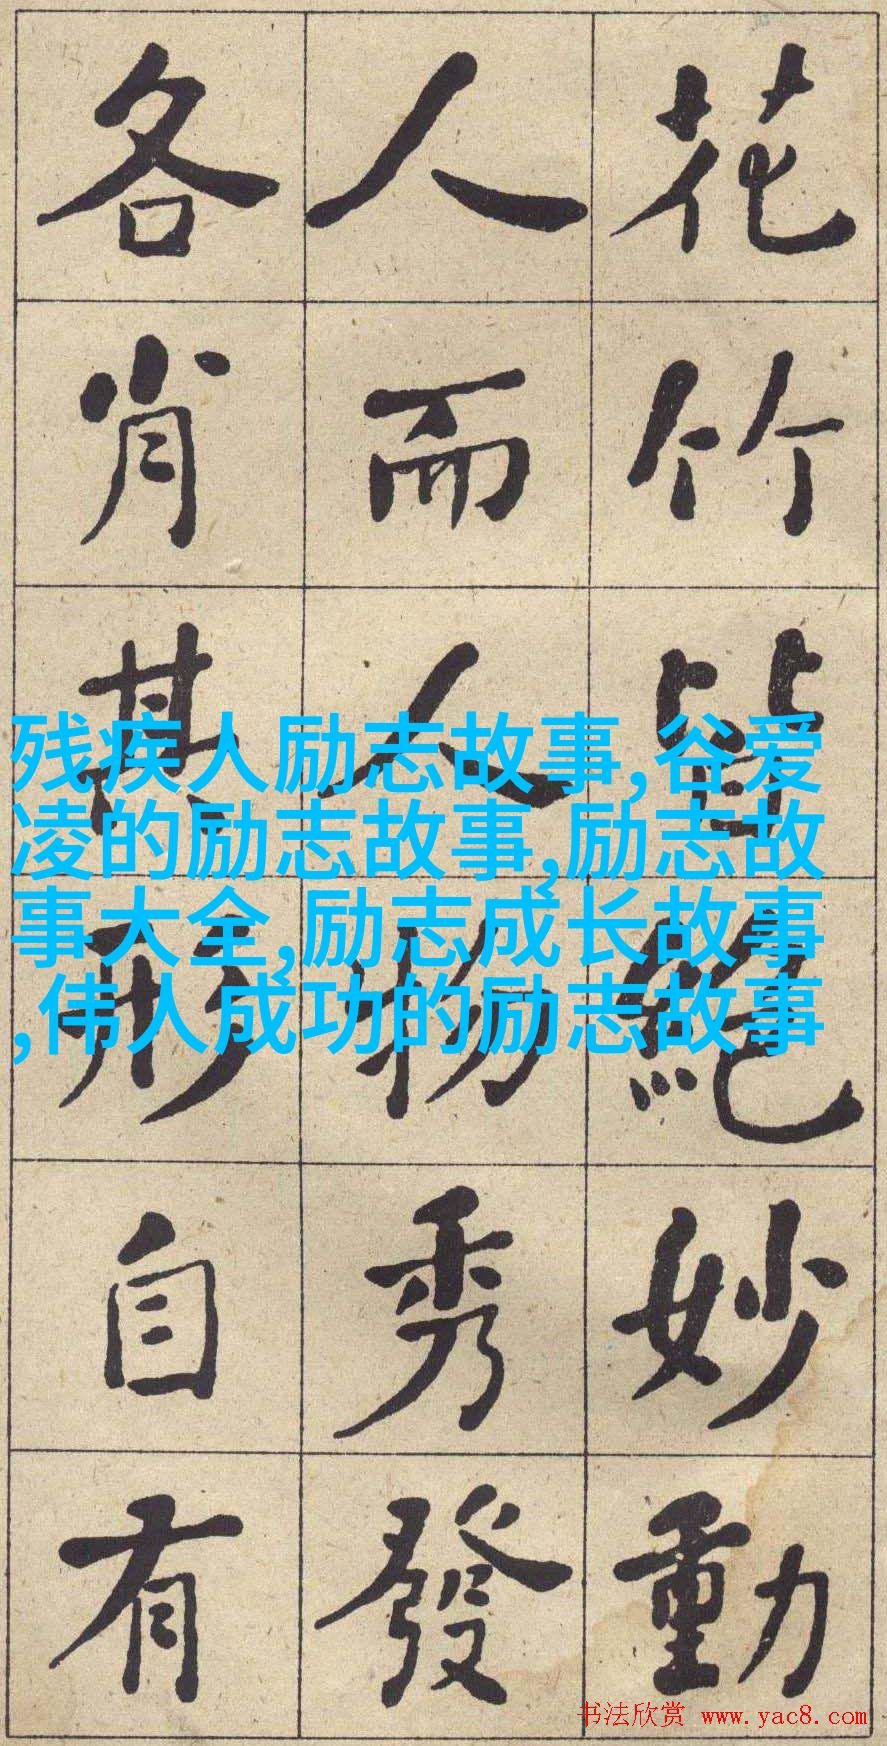 花竹皆絕妙動
人而人物秀發
各肖其形自有
残疾人励志故事,谷爱
凌的励志故事,励志故
事大全,励志成长故事
,伟人成功的励志故事
书法欣赏 www.yac8.com